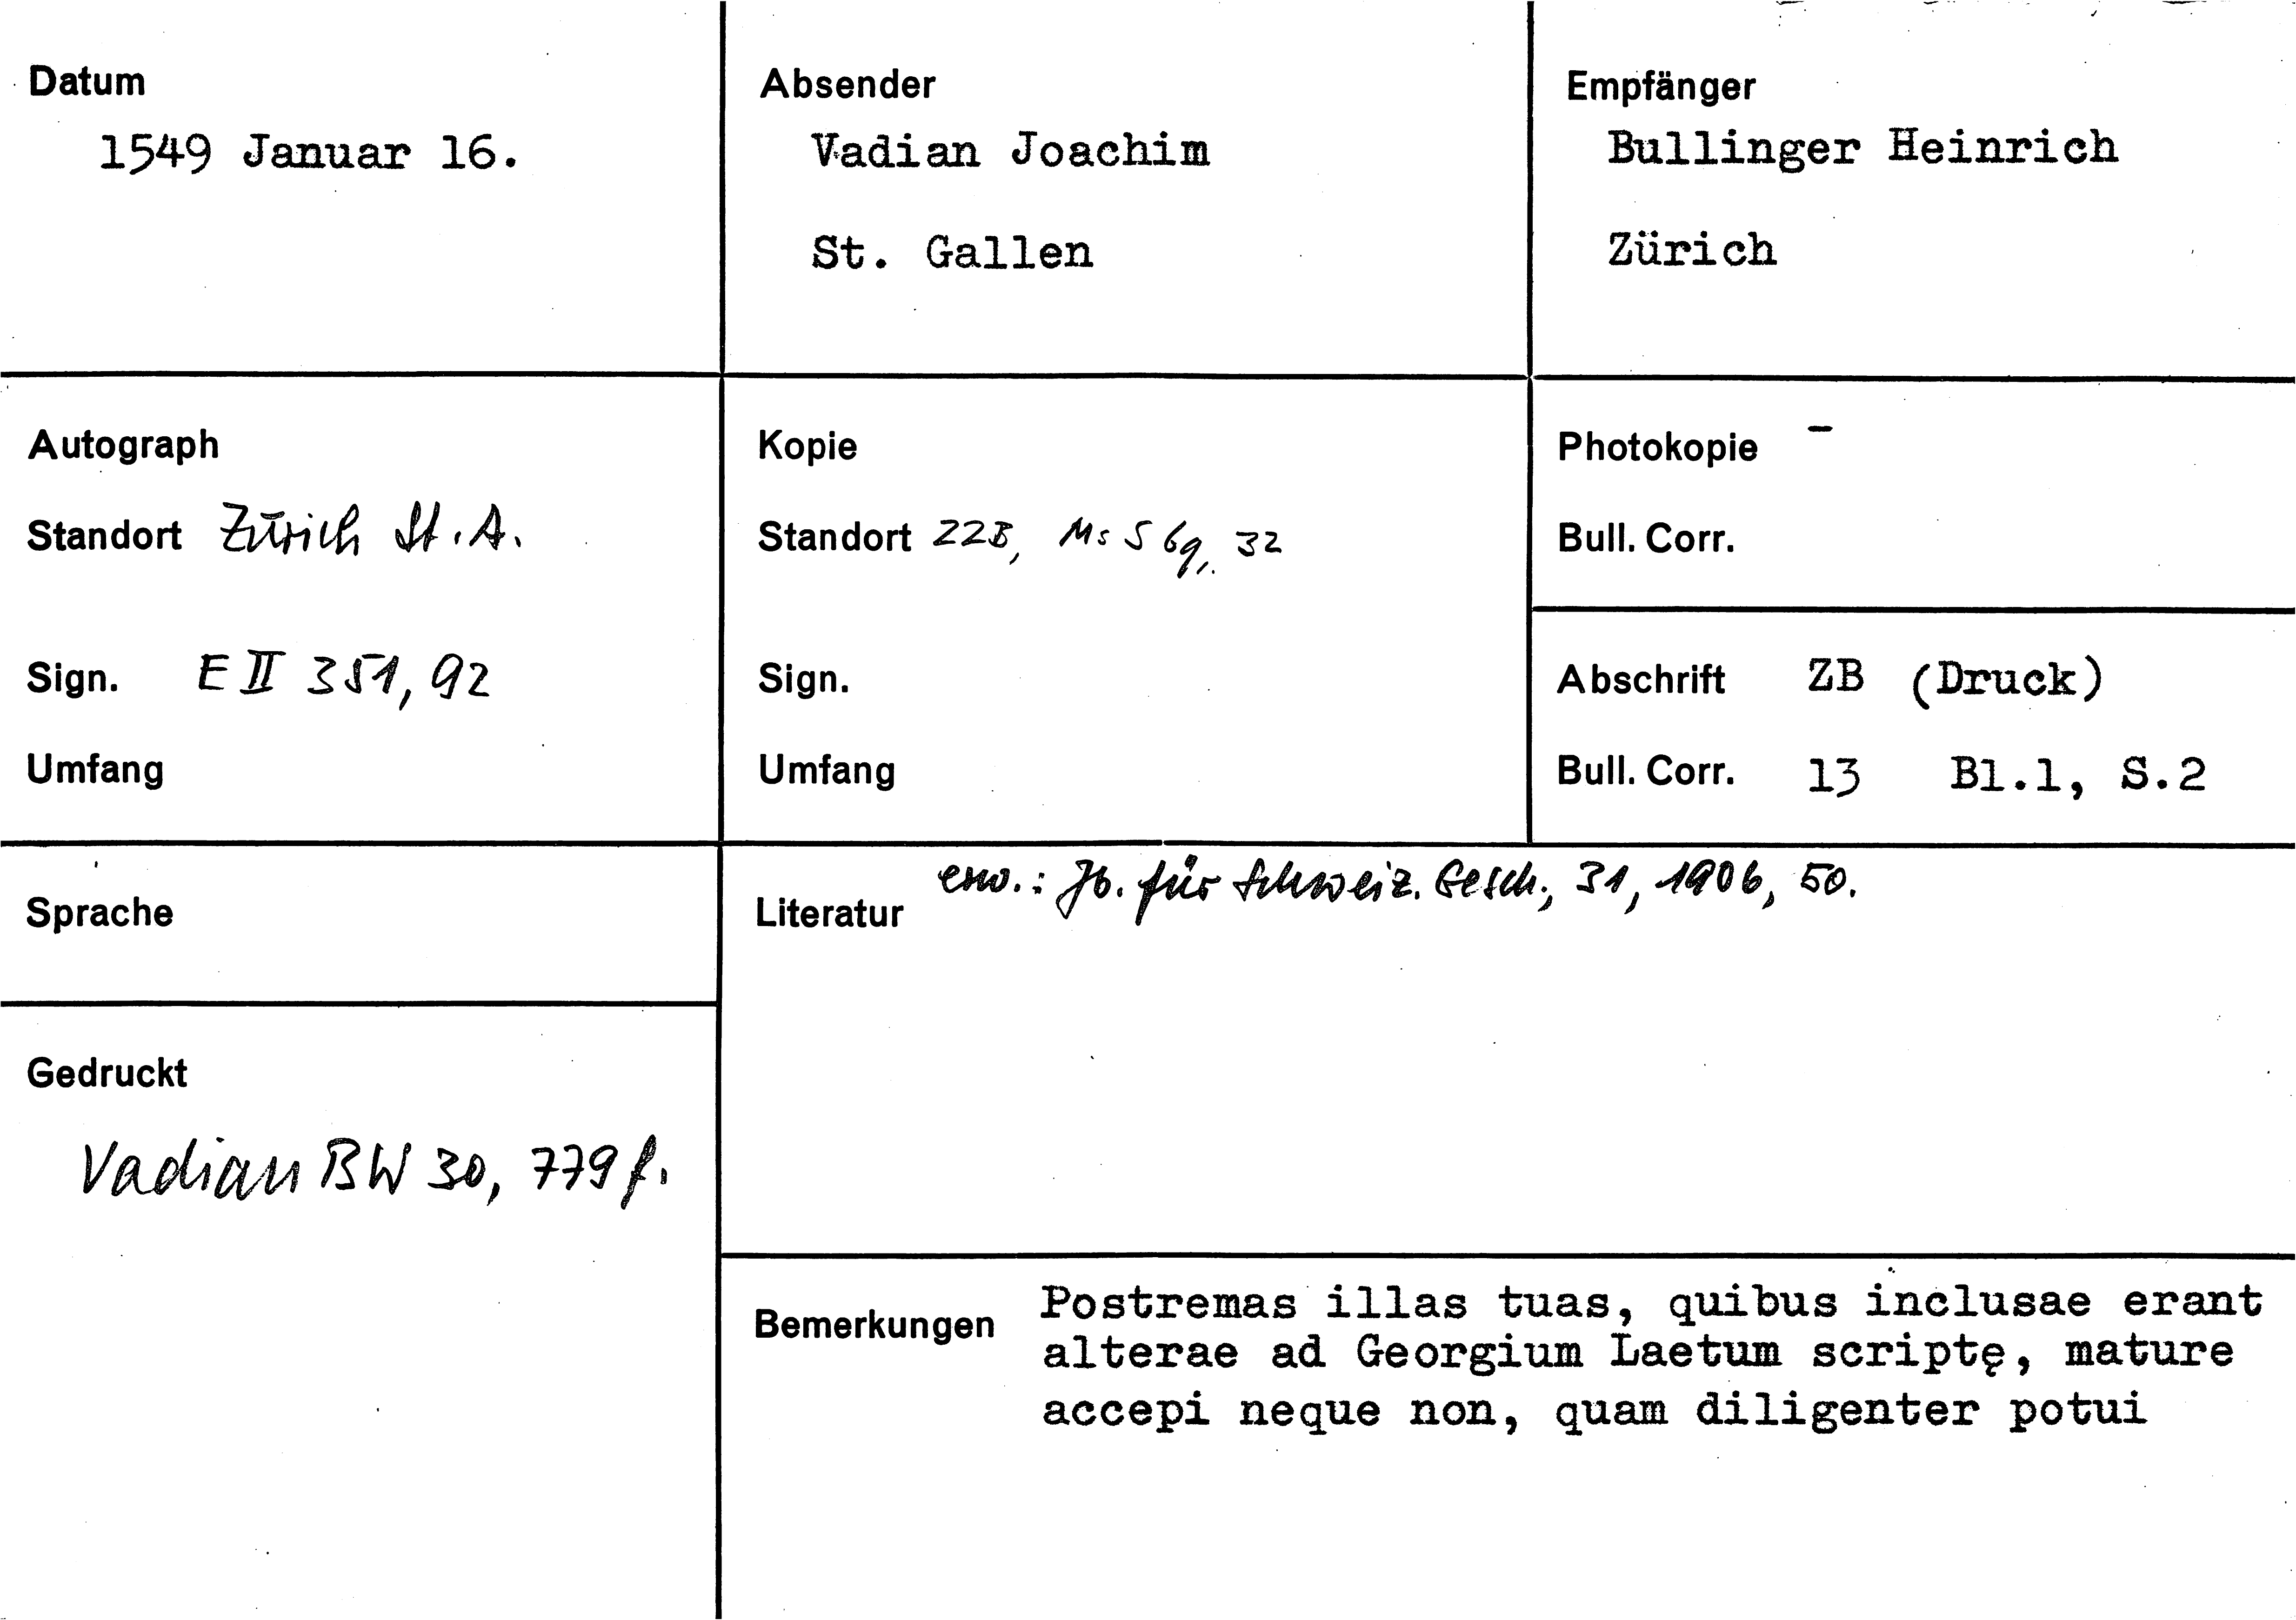 Datum
1549 Januar 16.
Absender
Vadian Joachim
St. Gallen
Empfänger
Bullinger Heinrich
Zürich
Autograph
Standort Zürich St. A.
Sign. E II 351, 92
Umfang
Kopie
Standort ZZB, Ms S 69, 32
Sign.
Umfang
Photokopie -
Bull. Corr.
Abschrift ZB (Druck)
Bull. Corr. 13 Bl.1, S.2
Sprache
Literatur erw.: Jb. für Schweiz. Gesch., 31, 1906, 50.
Gedruckt
Vadian BW 30, 779 f.
Bemerkungen Postremas illas tuas, quibus inclusae erant
alterae ad Georgium Laetum scriptę, mature
accepi neque non, quam diligenter potui